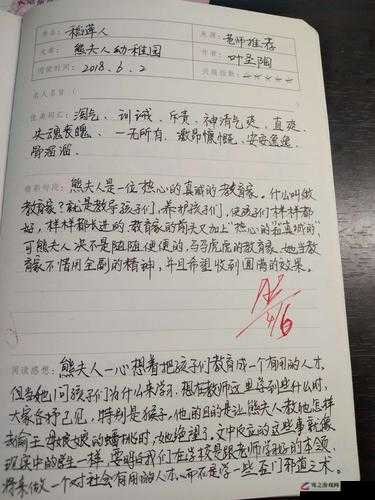 书名：稻草人 来源：老师推荐
文章：熊夫人幼稚园 作者：叶圣陶
阅读时间：2018.6.2 点赞指数：☆☆☆☆☆
名人名言
优美词汇：淘气、训诫、斥责、神清气爽、直爽、
失魂丧魄、一无所有、激昂慷慨、安安逸逸、
滑溜溜、
精彩句段：熊夫人是一位热心的真诚的教育家。什么叫做
教育家？就是教导孩子们，养护孩子们，使孩子们样样都
好，样样都长进的。教育家的前头又加上"热心的和真诚的"，
可熊夫人决不是随随便便的马马虎虎的教育家。她当教
育家不惜用全副的精神，并且希望收到圆满的效果。
6/6
阅读感想：熊夫人一心想着把孩子们教育成一个有用的人才。
但当她问孩子们为什么来学习，想在教师这里得到些什么时，
大家各抒己见，特别是猴子，他的目的是让熊夫人教他怎样
去偷王母娘娘的蟠桃时，她绝望了。文中反应的这些事就像
现实中的学生一样，要明白我们在学校是跟老师学好的本领，
将来做一个对社会有用的人才，而不是学一些歪门邪道之术。